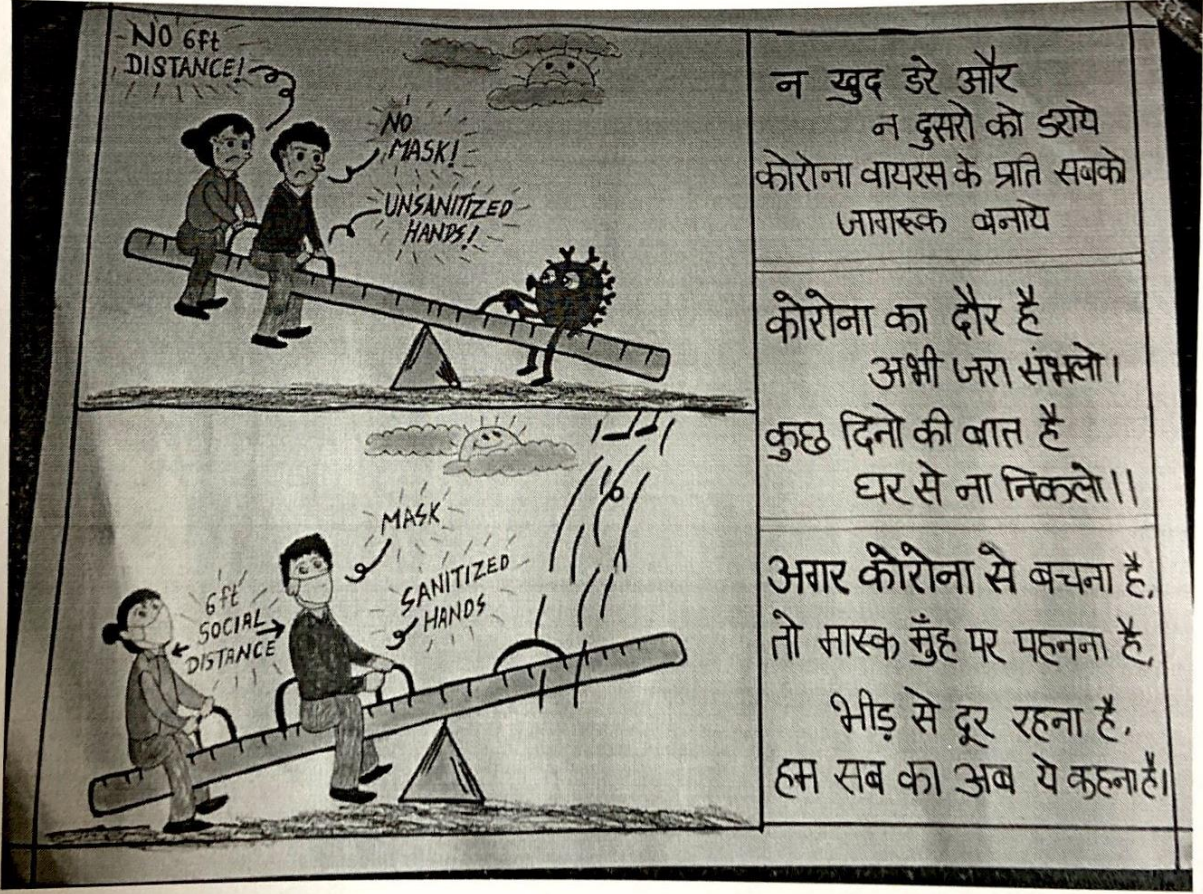 NO 6ft
DISTANCE!
NO
MASK!
UNSANITIZED
HANDS!
MASK
SANITIZED
HANDS
6ft
SOCIAL
DISTANCE
न खुद डरे और
न दुसरो को डराये
कोरोना वायरस के प्रति सबको
जागरूक बनाये
कोरोना का दौर है
अभी जरा संभलो।
कुछ दिनो की बात है
घर से ना निकलो।।
अगर कोरोना से बचना है,
तो मास्क मुँह पर पहनना है,
भीड़ से दूर रहना है,
हम सब का अब ये कहना है।